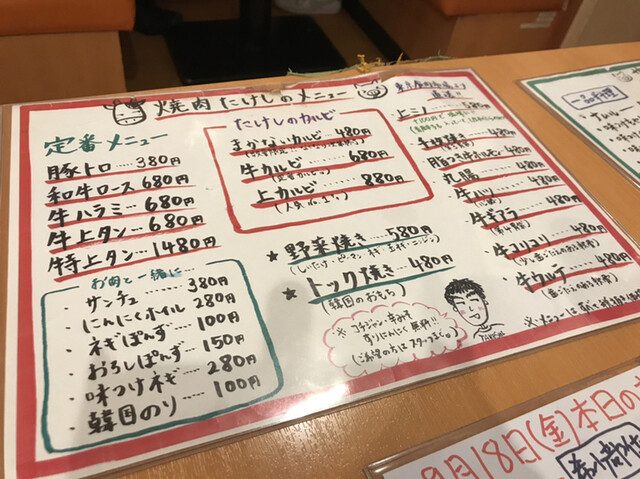 焼肉 たけしのメニュー
定番メニュー
豚トロ……380円
和牛ロース…680円
牛ハラミ……680円
牛上タン……680円
特上タン…1480円
お肉と一緒に…
・サンチュ……380円
・にんにくホイル 280円
・ネギぽんず…100円
・おろしぽんず…150円
・味つけネギ…280円
・韓国のり……100円
たけしのカルビ
まかないカルビ…480円
牛カルビ……680円
(定番カルビ)
上カルビ……880円
(人気No.1!!)
★野菜焼き…580円
★トック焼き…480円
(韓国のおもち)
※コチジャン・辛みそ
すりにんにく無料!!
(ご希望の方はスタッフまで。)
上ミノ……580円
480円
豚
480円
乳腸……480円
牛ハツ……480円
(心臓)
牛ギアラ…480円
(第4胃袋)
牛コリコリ…480円
牛ウルテ…480円
※メニューは
一品料理
9月18日(金)本日の